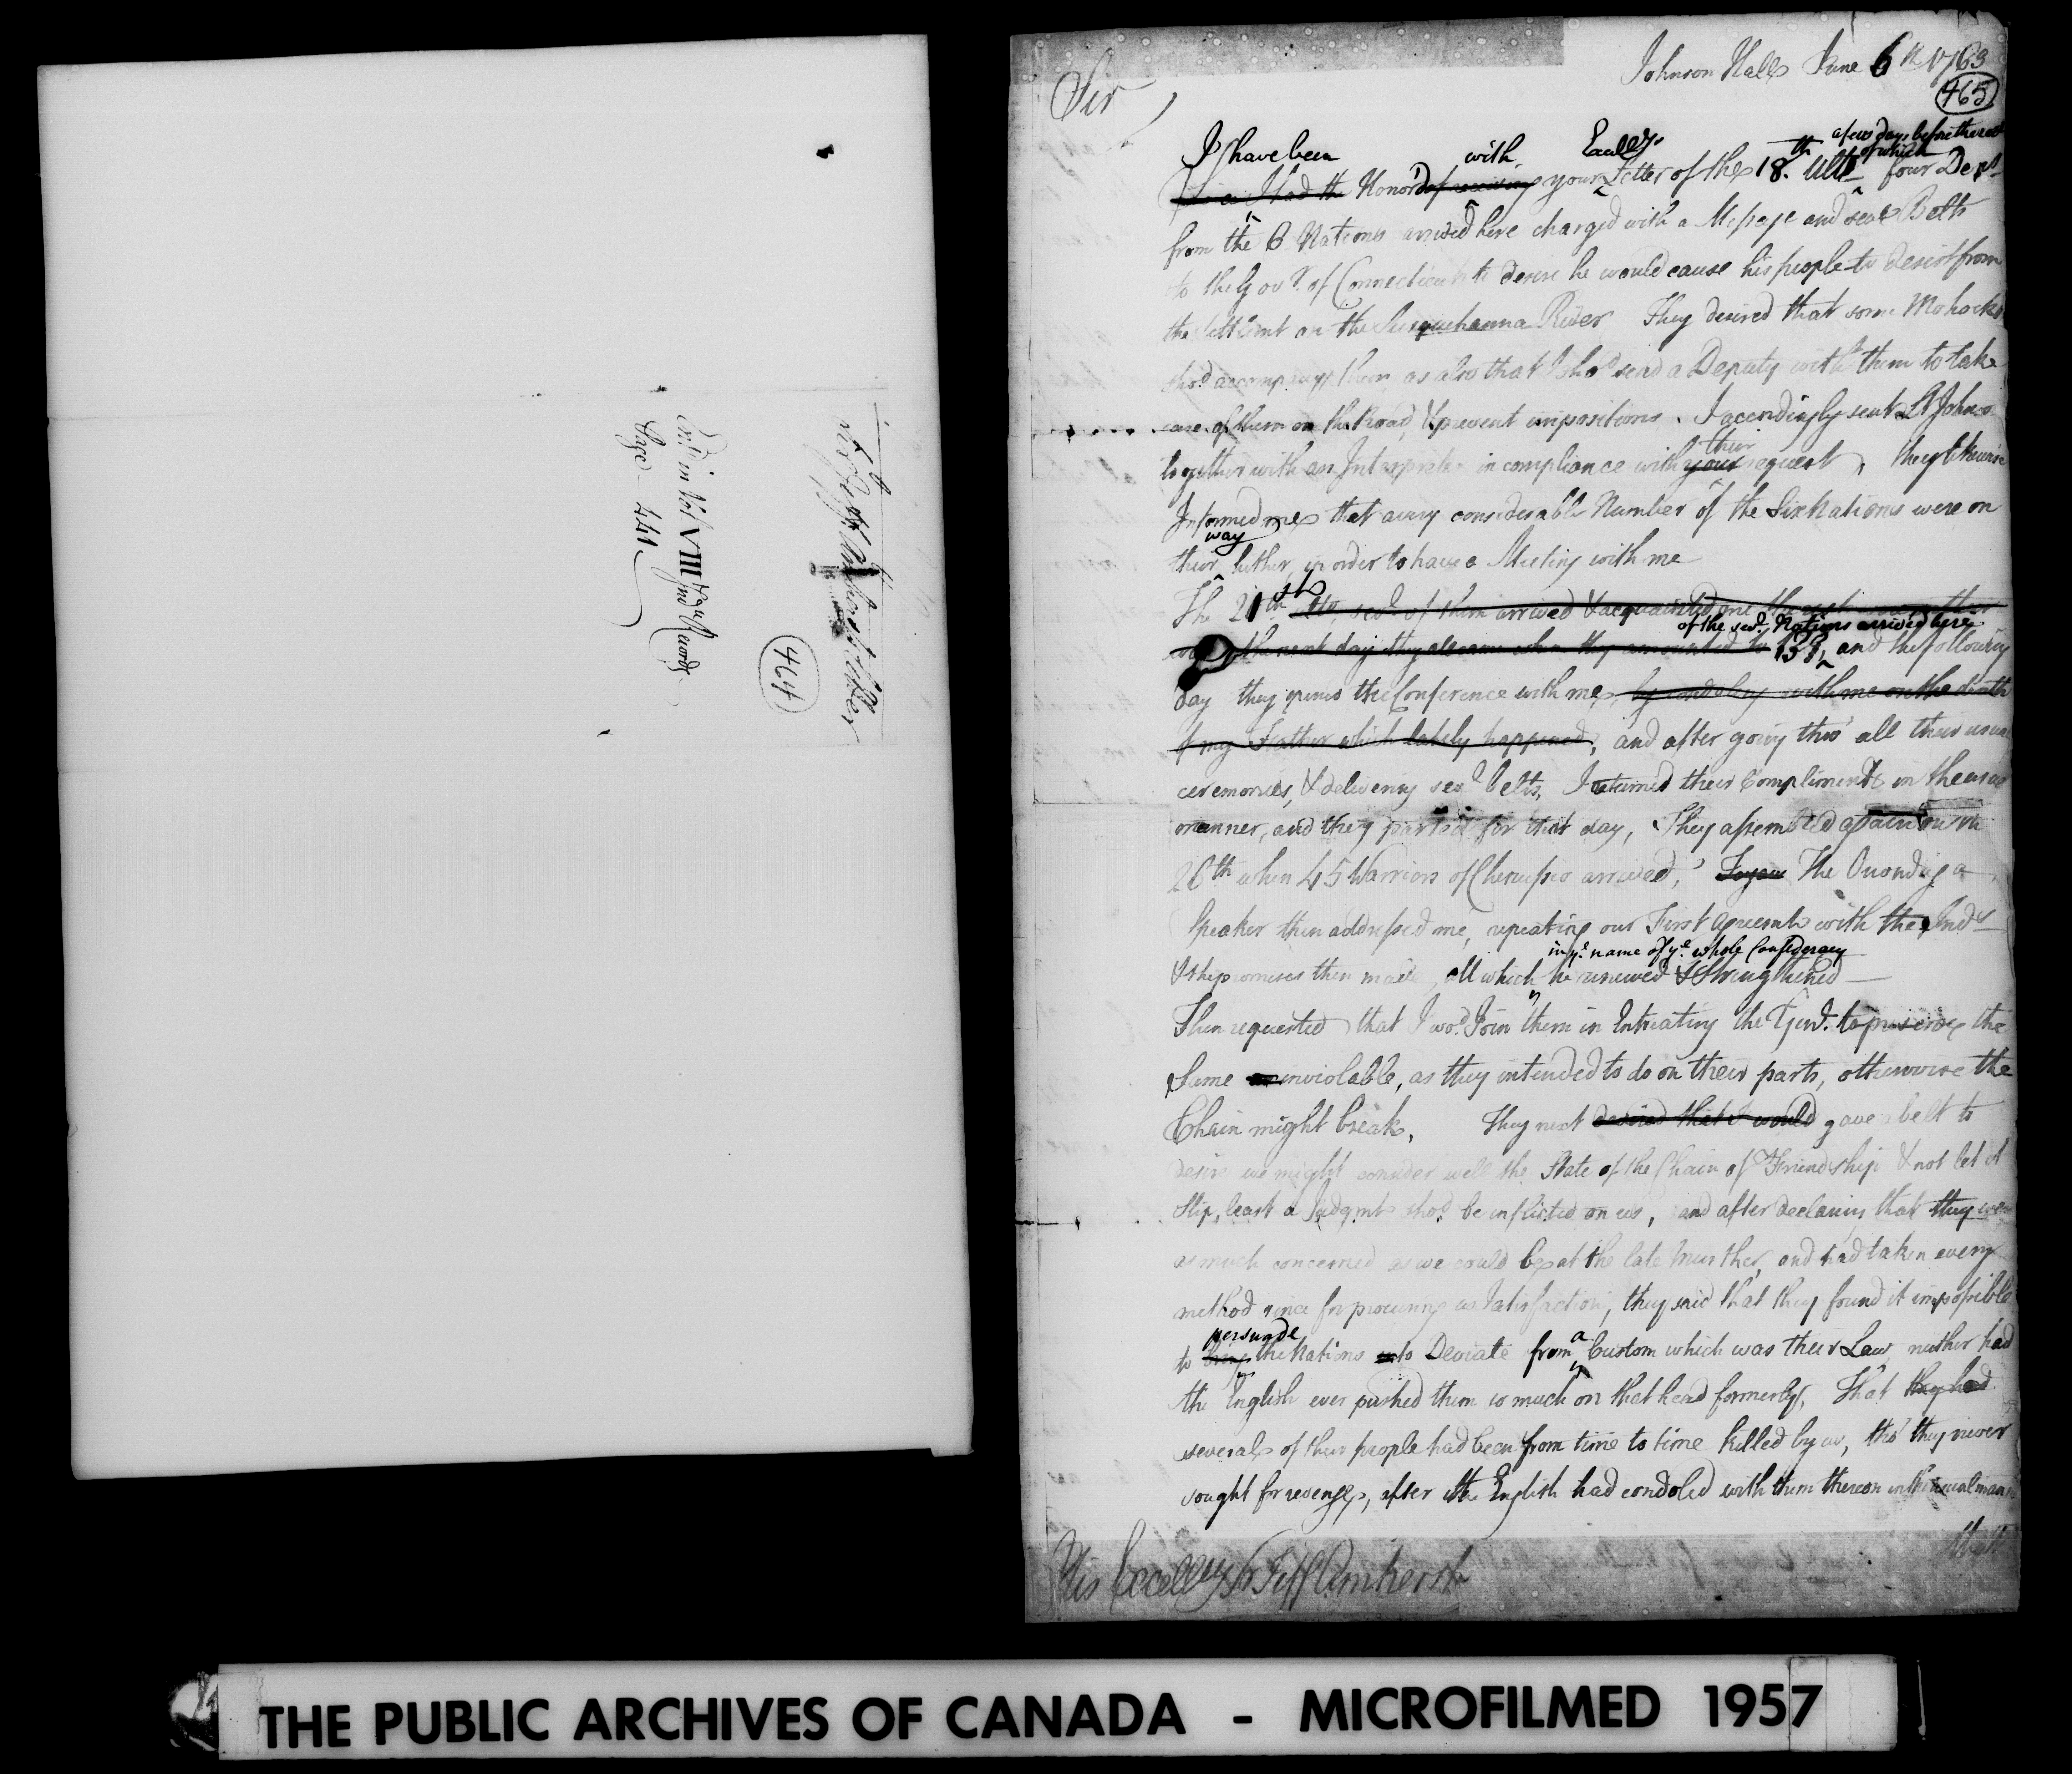 Sir Jeff: Amherst's Letter
464
Ent'd in Vol VIII Ind Records
Page 441
Johnson Hall June 6th 1763
465
Sir
I have been with Excellys. a few days before the rect of which
Since I had the Honor'd of receiving your Letter of the 18th. Ulto four Depts
from the 6 Nations arrived here charged with a Message and sevl Belts
to the Govr. of Connecticut to desire he would cause his people to desist from
the Settlemt on the Susquehanna River They desired that some Mohocks
shod accompany them as also that I shod send a Deputy with them to take
care of them on the Road, & prevent impositions. I accordingly sent Lt Johnson
together with an Interpreter in compliance with your their request, they likewise
Informed me that a very considerable Number of the Six Nations were on
their way hither, in order to have a Meeting with me
The 21st Ulto, sevl. of them arrived & acquainted me
the next day they all came when they amounted to 131, of the sevl. Nations arrived here and the following
day they opened the Conference with me, by condoling with me on the death
of my Father which lately happened, and after going thro' all their usual
ceremonies, & delivering sevl belts, I returned their Compliments in the usual
manner, and they parted for that day, They assembled again on the
26th when 45 Warriors of Chenussio arrived, The Onondaga
Speaker then addressed me, repeating our First Agreemt with the Inds
& the promises then made, all which he in ye. name of ye. whole Confederacy renewed & Strengthened
Then requested that I wod. Join them in Intreating the Genl. to preserve the
Same inviolable, as they intended to do on their parts, otherwise the
Chain might break. They next desired that I would gave a belt to
desire we might consider well the State of the Chain of Friendship & not let it
Slip, least a Judgmt shod. be inflicted on us, and after declaring that they were
as much concerned as we could be at the late Murther, and had taken every
method since for procuring us Satisfaction, they said that they found it impossible
to bring persuade the Nations to Deviate from a Custom which was their Law, neither had
the English ever pushed them so much on that head formerly, That they had
several of their people had been from time to time killed by us, tho' they never
sought for revenge, after the English had condoled with them thereon in the usual manr
His Excellcy Sr Jeff Amherst
THE PUBLIC ARCHIVES OF CANADA - MICROFILMED 1957